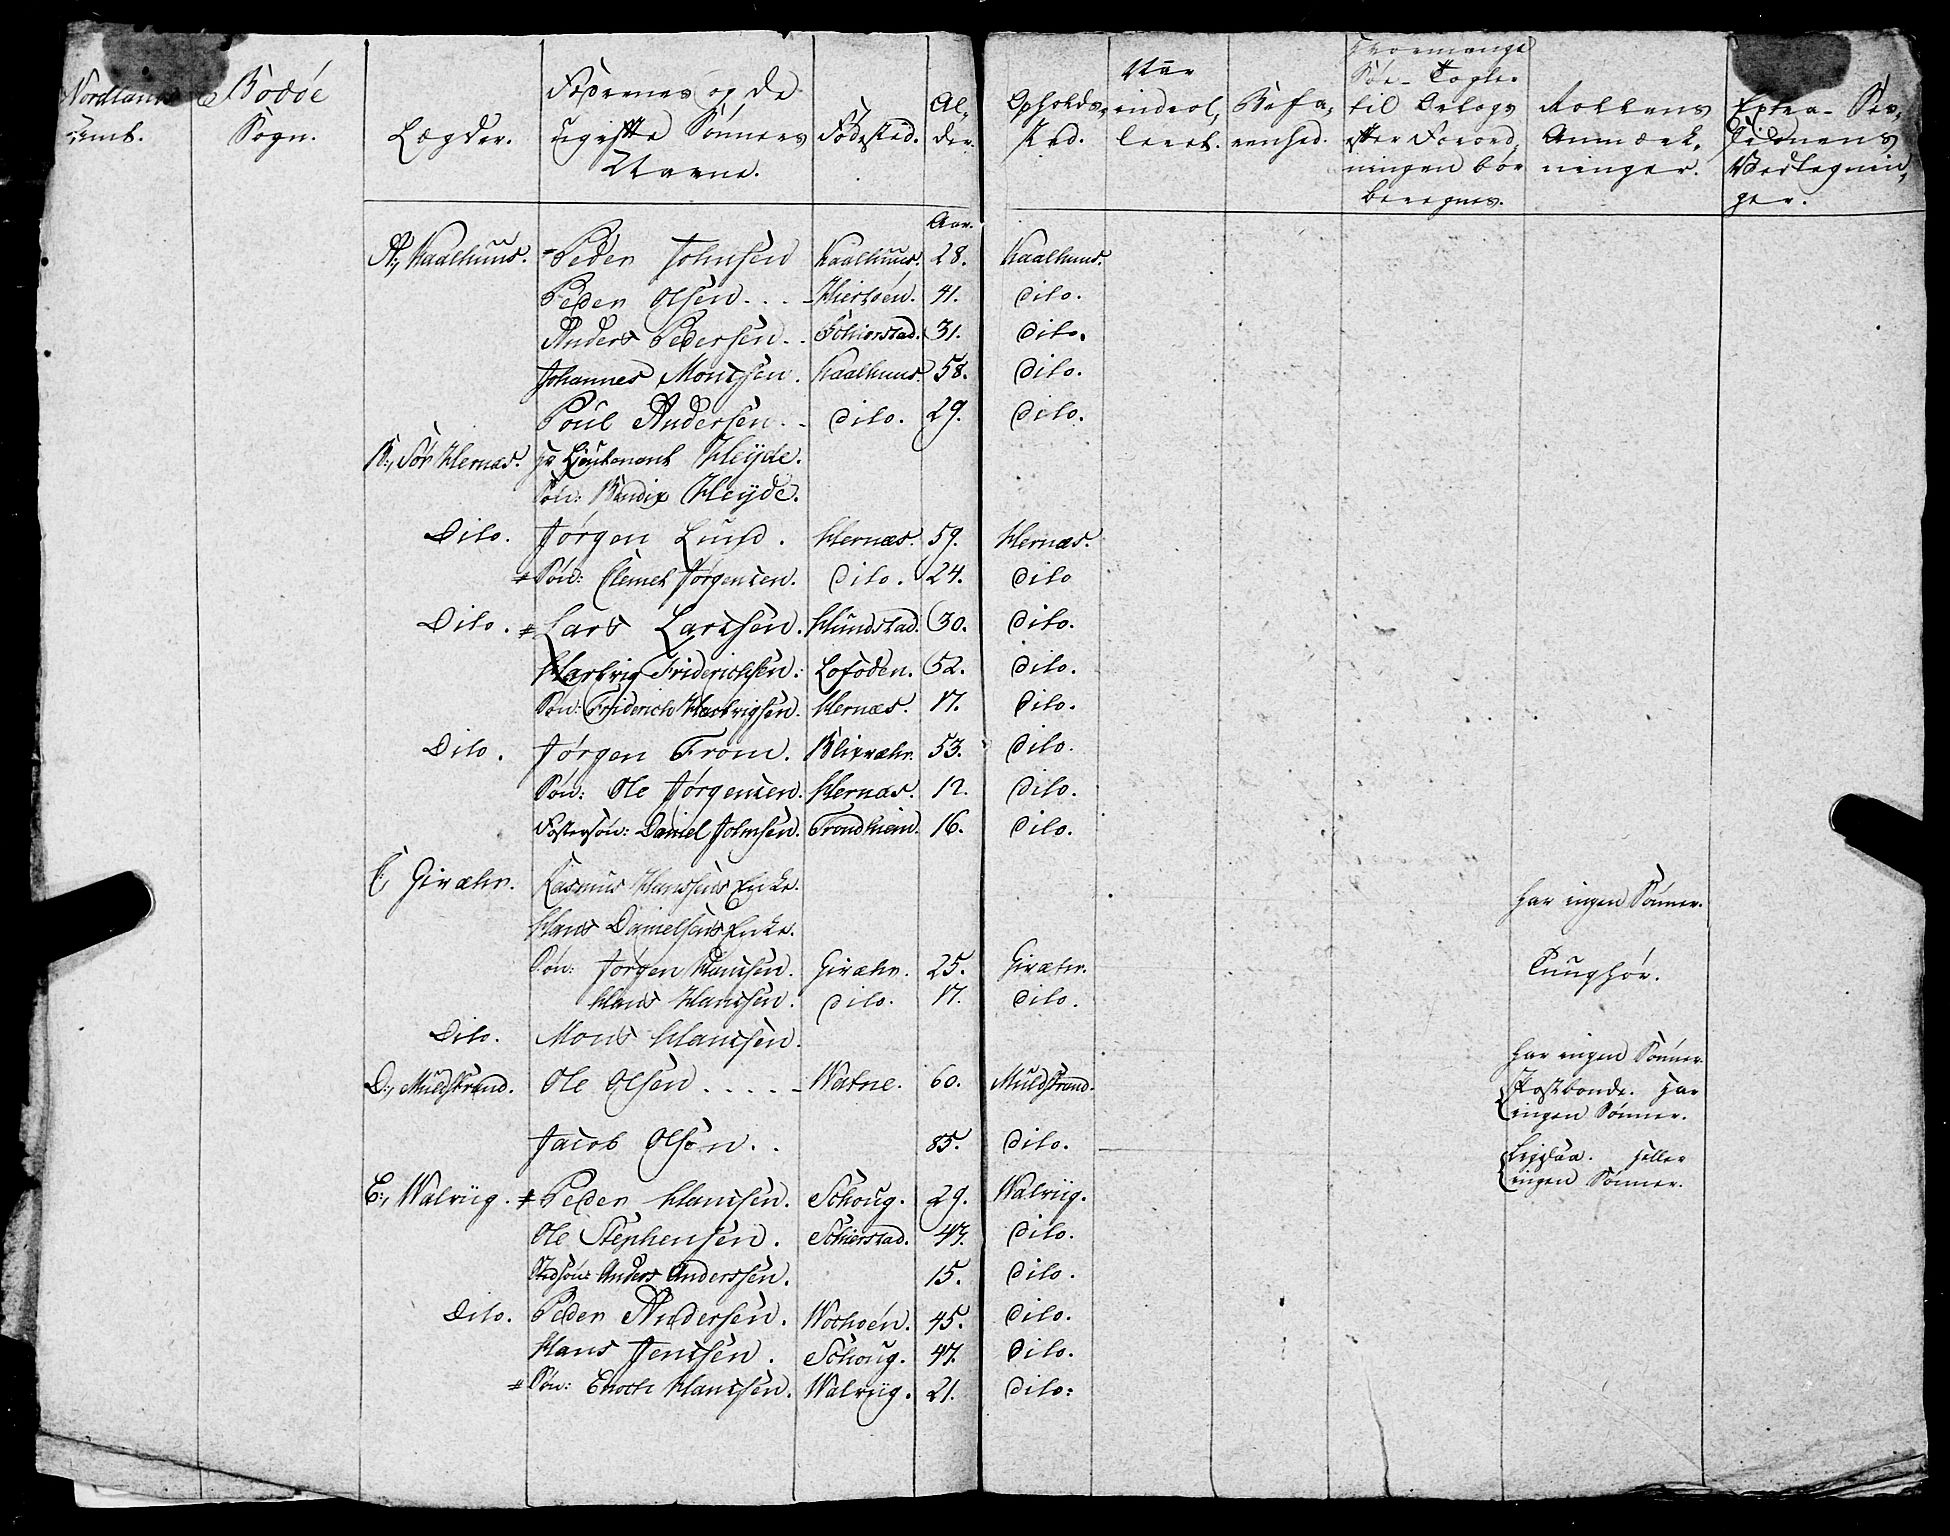 Nordlands Amt.
Bodöe Sogn.
Lægder.
Fædrenes og de ugifte Sönners Navne.
Fødested.
Alder.
Opholds Sted.
Naar inderolleret.
Befarenhed.
Hvormange Söe-Togter til Orlogs efter Forordningen bör beregnes.
Rollens Anmærkninger.
Extra-Sessionens Vedtegninger.
Aar.
A:, Kaalhuus. Peder Johnsen Kaalhuus. 28. Kaalhuus.
Peder Olsen. . . . Hiertöen. 41. dito.
Anders Pedersen. . Schierstad. 31. dito.
Johannes Montsen. Kaalhuus. 58. dito.
Poul Andersen. . dito. 29. dito.
B:, Sör Hernæs. Hr Lieutenant Heyde.
Sön: Bendix Heyde.
Dito. Jörgen Lund. Hernæs. 59. Hernæs.
Sön: Clemet Jörgensen. dito. 24. dito
Dito. Lars Larssen. Hundstad. 30. dito.
Hartvig Friderichsen. Lofoden. 52. dito.
Sön: Friderich Hartvigsen. Hernæs. 17. dito.
Dito. Jörgen From. Blixvær. 53. dito.
Sön: Ole Jörgensen. Hernæs. 12. dito.
Fostersön: Daniel Johnsen. Trondhiem. 16. dito.
C, Givæhr. Rasmus Hanssens Enke. har ingen Sönner.
Hans Danielsens Enke.
Sön: Jörgen Hanssen. Givæhr. 25. Givæhr. Tunghör.
Hans Hanssen. dito. 17. dito.
Dito. Mons Hanssen. har ingen Sönner.
D:, Muldstrand. Ole Olsen . . . . . Watne. 60. Muldstrand. Postbonde. har
ingen Sönner.
Jacob Olsen. . 85. dito. Ligesaa. heller
ingen Sönner.
E:, Walviig. Peder Hanssen. Schoug. 29. Walviig.
Ole Stephensen. Schierstad. 47. dito.
Stedsön: Anders Anderssen. 15. dito.
Dito. Peder Andersen. Wothöen. 45. dito.
Hans Jenssen. Schoug. 47. dito.
Sön: Enoch Hanssen. Walviig. 21. dito: